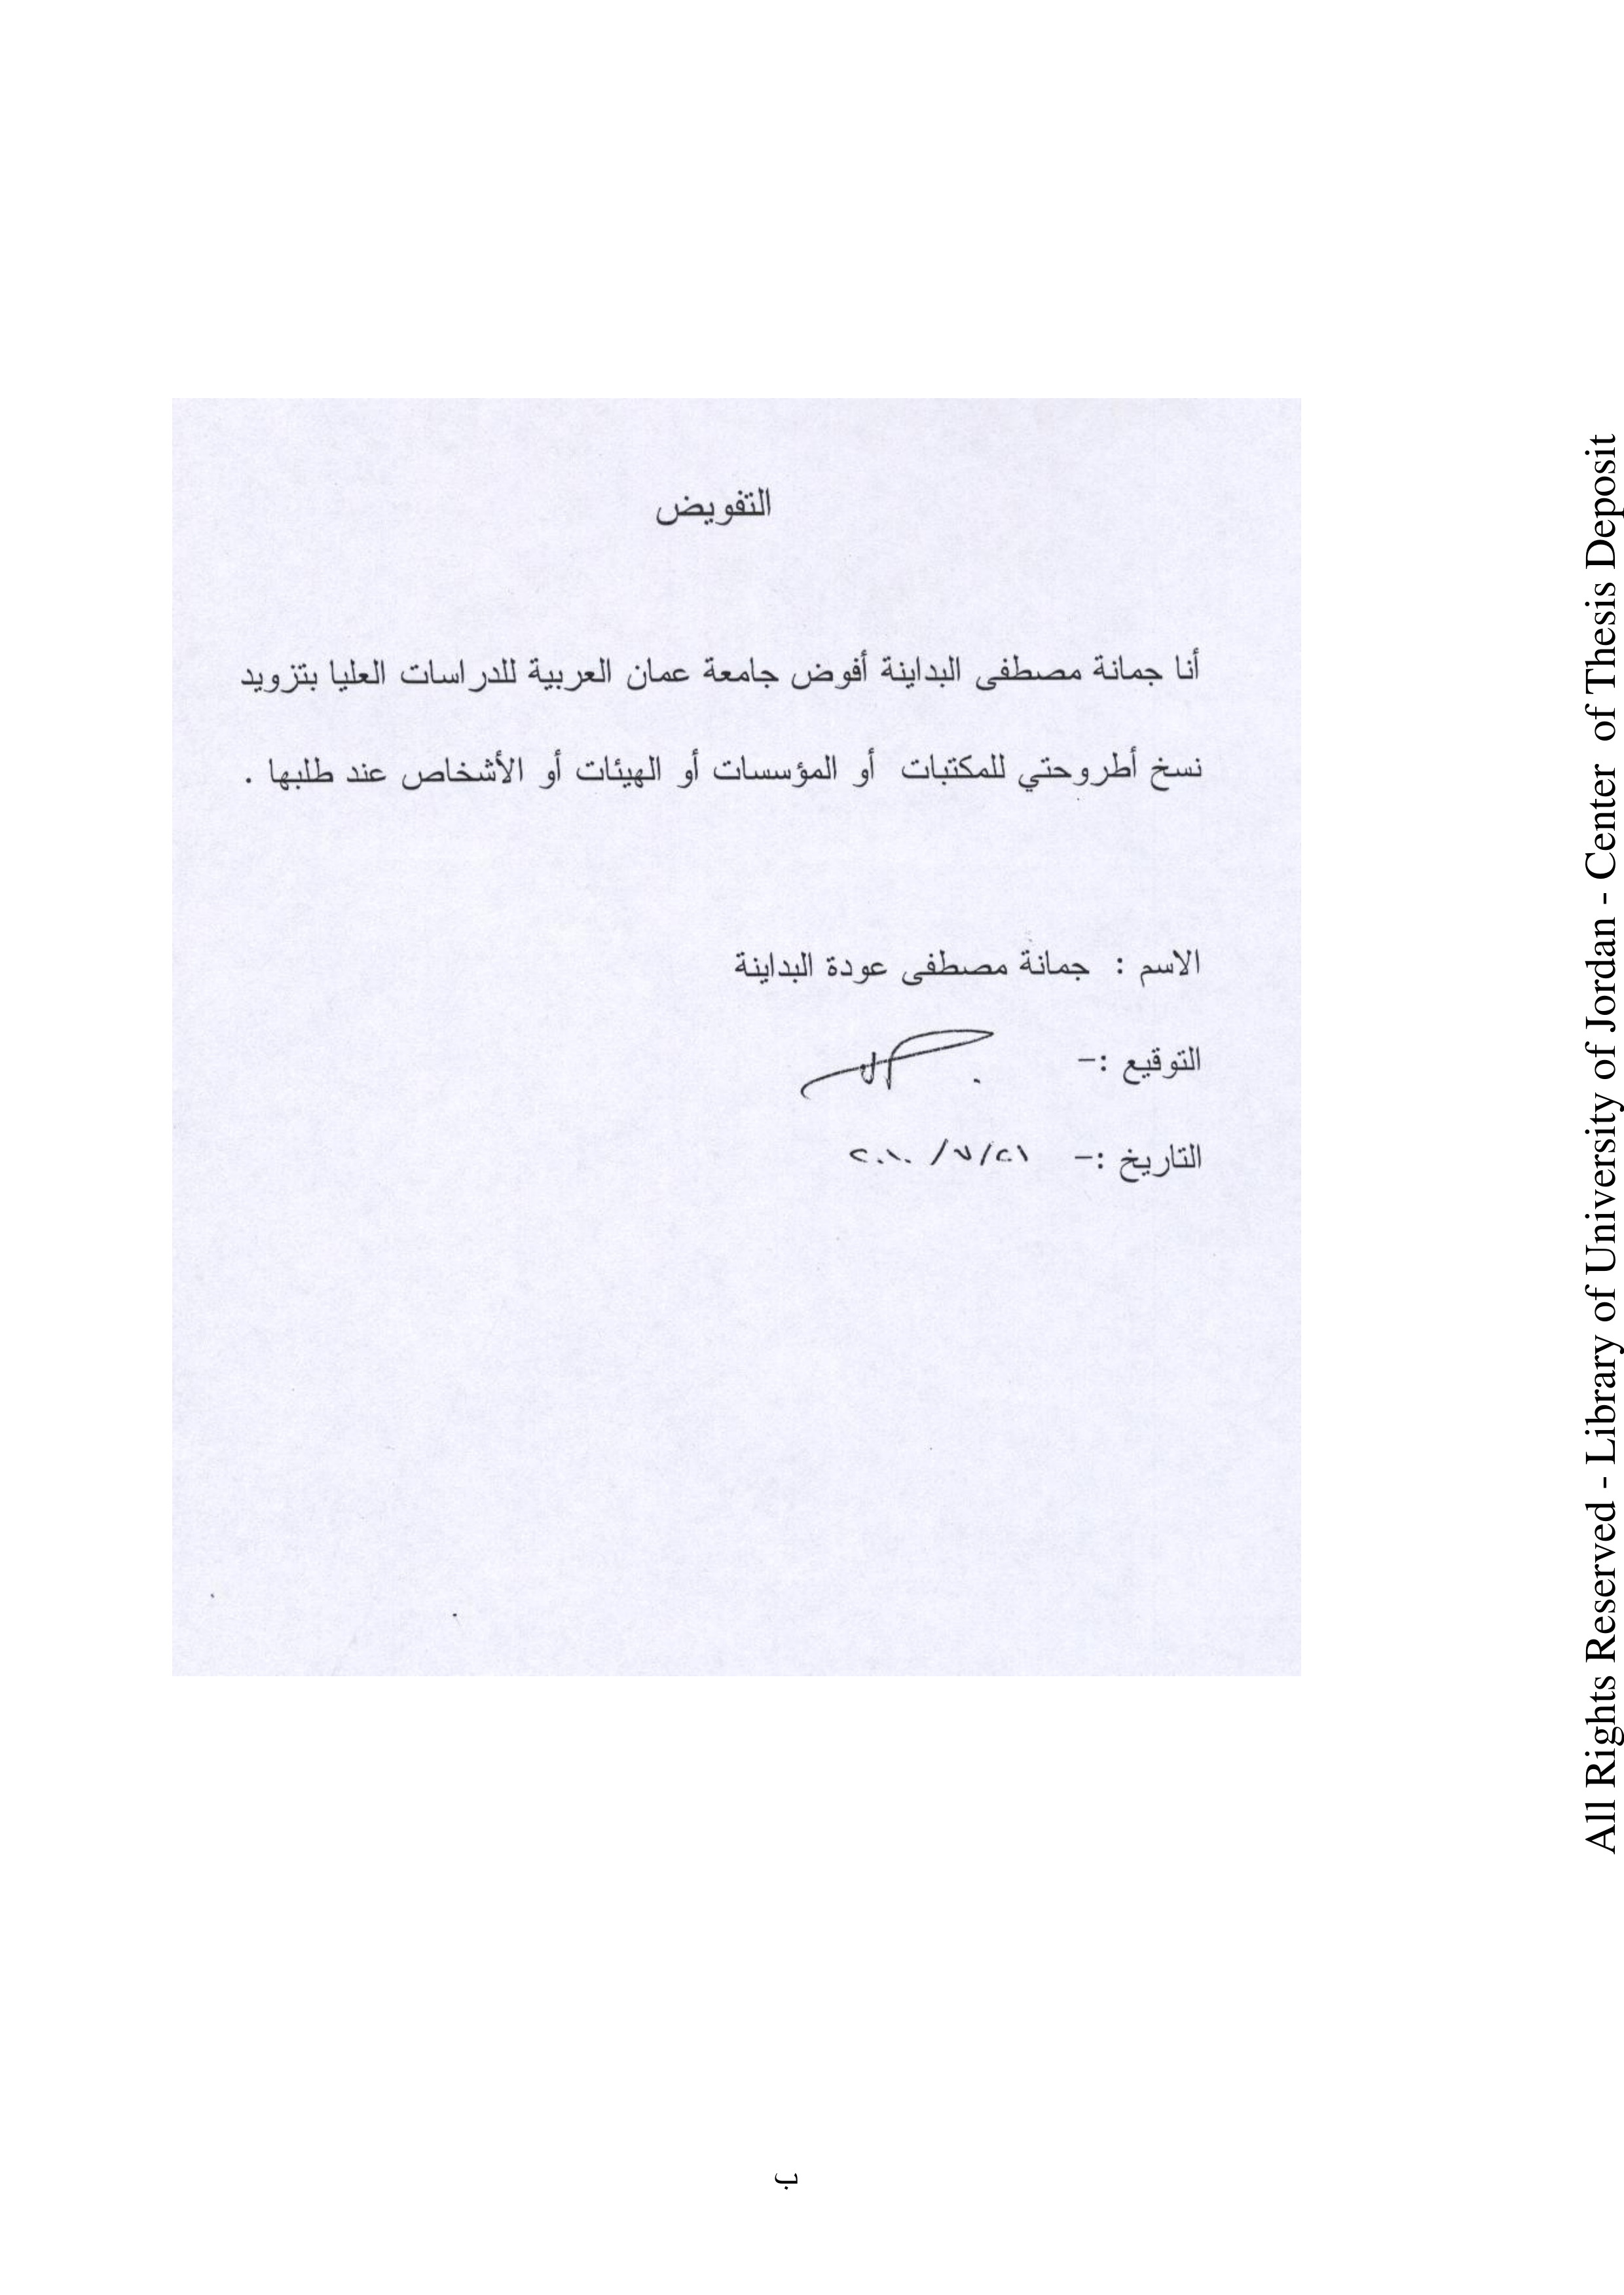 التفويض
أنا جمانة مصطفى البداينة أفوض جامعة عمان العربية للدراسات العليا بتزويد
نسخ أطروحتي للمكتبات أو المؤسسات أو الهيئات أو الأشخاص عند طلبها .
الاسم : جمانة مصطفى عودة البداينة
التوقيع :-
التاريخ :- ٢١/٧/٢٠١٠
ب
All Rights Reserved - Library of University of Jordan - Center of Thesis Deposit